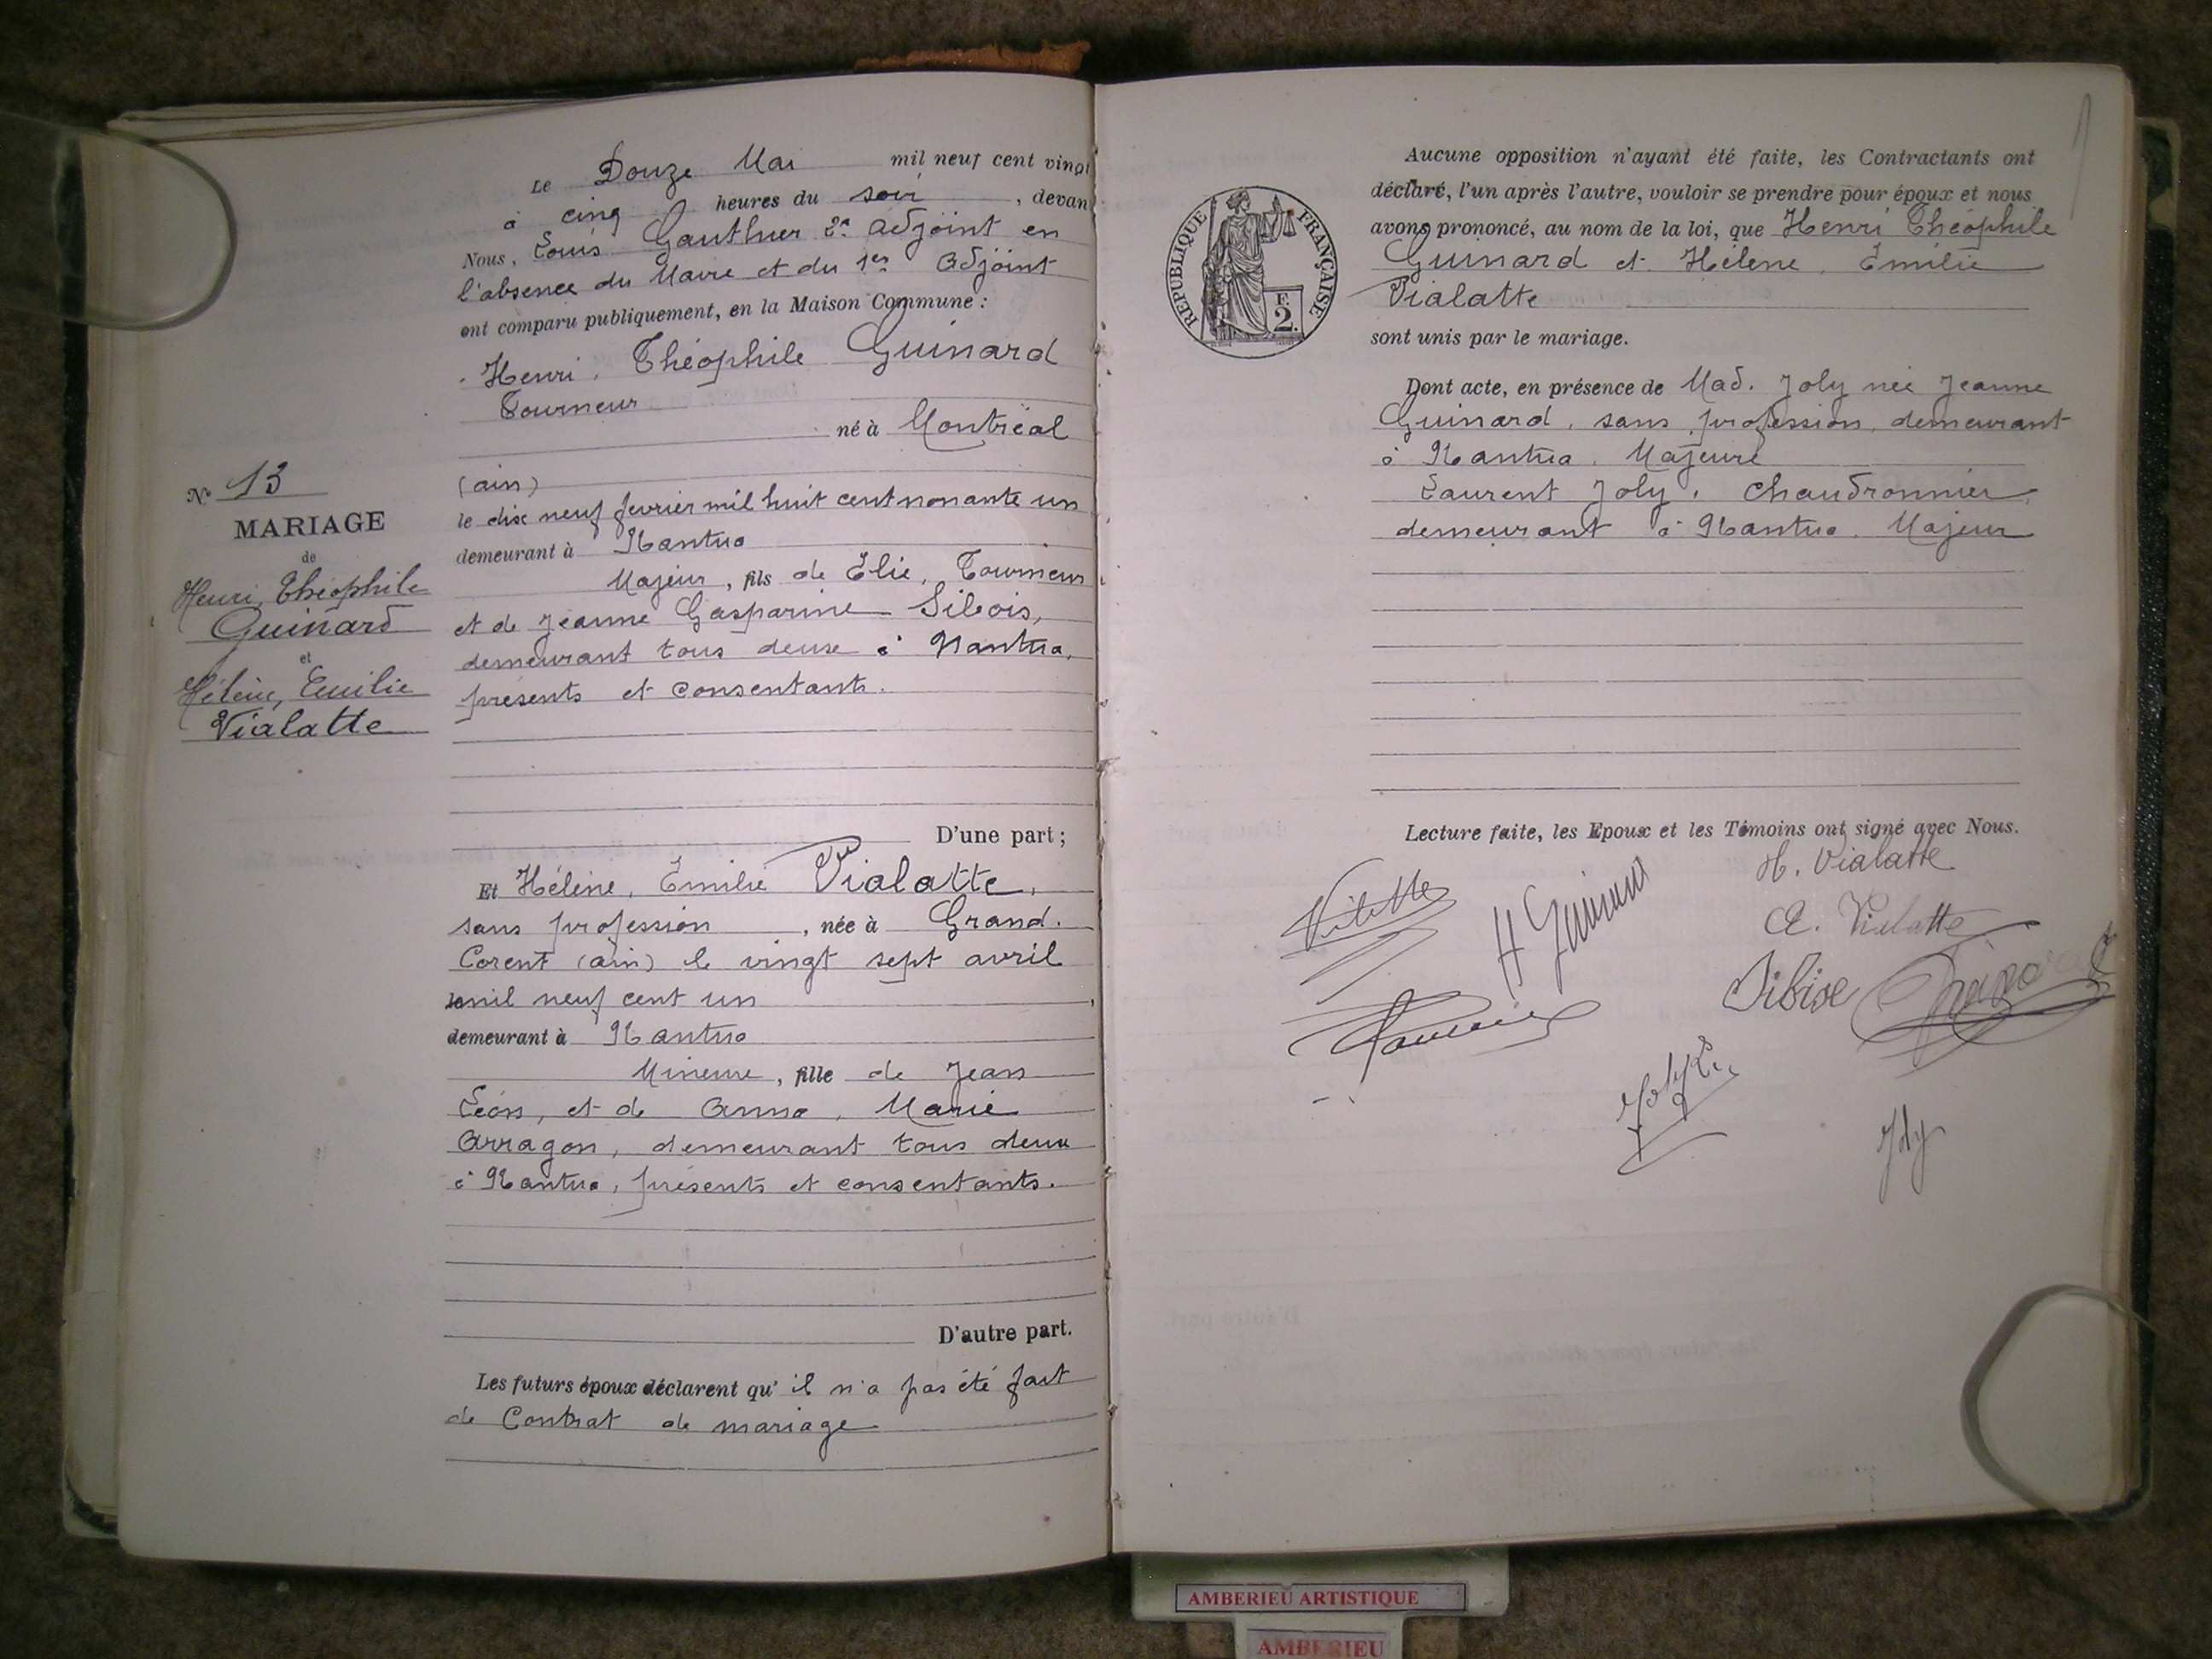 Le Douze Mai mil neuf cent vingt
à cinq heures du soir, devan
Nous, Louis Gauthier 2e adjoint en
l'absence du Maire et du 1er adjoint
ont comparu publiquement, en la Maison Commune :
Henri, Théophile Guinard
Tourneur
né à Montréal
(ain)
le dix neuf fevrier mil huit cent nonante un
demeurant à Nantua
Majeur, fils de Elie, Tourneur
et de Jeanne Gasparine Sibois,
demeurant tous deux à Nantua,
présents et consentants.
D'une part ;
Nº 13
MARIAGE
de
Henri, Théophile
Guinard
et
Hélène, Emilie
Vialatte
Et Hélène, Emilie Vialatte,
sans profession, née à Grand.
Corent (ain) le vingt sept avril
mil neuf cent un
demeurant à Nantua
Mineure, fille de Jean
Léon, et de Anna, Marie
Arragon, demeurant tous deux
à Nantua, présents et consentants.
D'autre part.
Les futurs époux déclarent qu'il n'a pas été fait
de Contrat de mariage
RÉPUBLIQUE FRANÇAISE
F.
2.
Aucune opposition n'ayant été faite, les Contractants ont
déclaré, l'un après l'autre, vouloir se prendre pour époux et nous
avons prononcé, au nom de la loi, que Henri Théophile
Guinard et Hélène, Emilie
Vialatte
sont unis par le mariage.
Dont acte, en présence de Mad. Joly née Jeanne
Guinard, sans profession, demeurant
à Nantua. Majeure
Laurent Joly, chaudronnier,
demeurant à Nantua. Majeur
Lecture faite, les Epoux et les Témoins ont signé avec Nous.
H. Vialatte
H Guinard
A. Vialatte
Sibise
Joly
AMBERIEU ARTISTIQUE
AMBERIEU